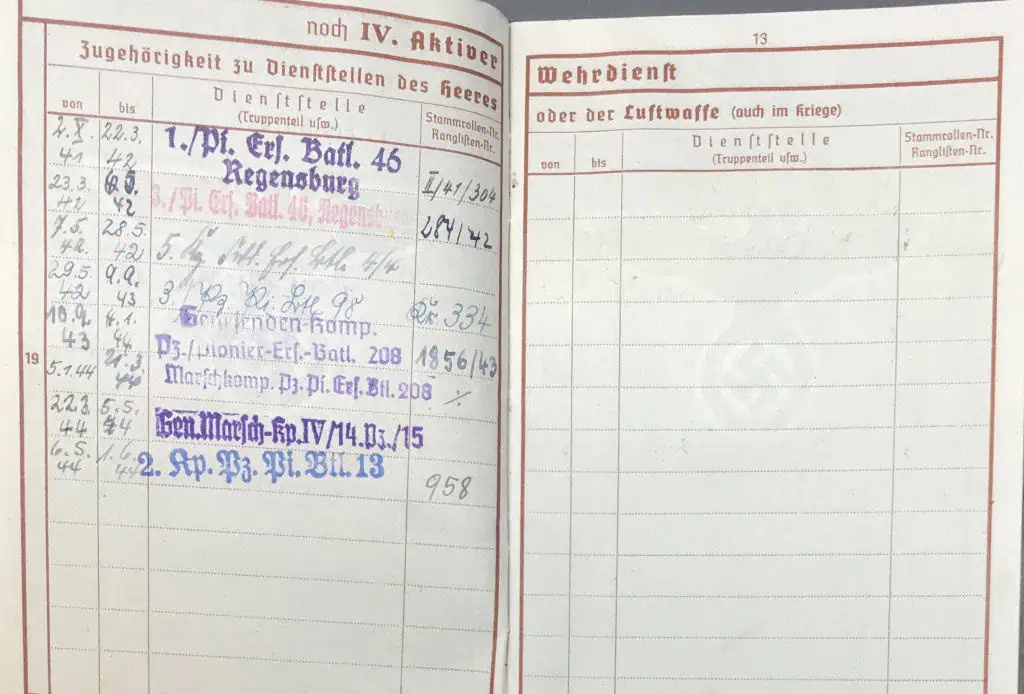 noch IV. Aktiver
Zugehörigkeit zu Dienststellen des Heeres
von
bis
Dienststelle
(Truppenteil usw.)
Stammrollen-Nr.
Ranglisten-Nr.
2.X. 41
22.3. 42
1./Pi. Ers. Batl. 46
Regensburg
II/41/304
23.3. 42
6.5. 42
3./Pi. Ers. Batl. 46, Regensburg
284/42
7.5. 42.
28.5. 42
5.
29.5. 42
9.9. 43
3. Pz. Pi. Btl. 98
Kr. 334
10.9. 43
4.1. 44
Genesenden-Komp.
Pz./Pionier-Ers.-Batl. 208
1856/43
5.1.44
21.3. 44
Marschkomp. Pz. Pi. Ers. Btl. 208
22.3. 44
5.5. 44
Gen.Marsch-Kp.IV/14.Pz./15
6.5. 44
1.6. 44
2. Kp. Pz. Pi. Btl. 13
958
19
13
Wehrdienst
oder der Luftwaffe (auch im Kriege)
von
bis
Dienststelle
(Truppenteil usw.)
Stammrollen-Nr.
Ranglisten-Nr.